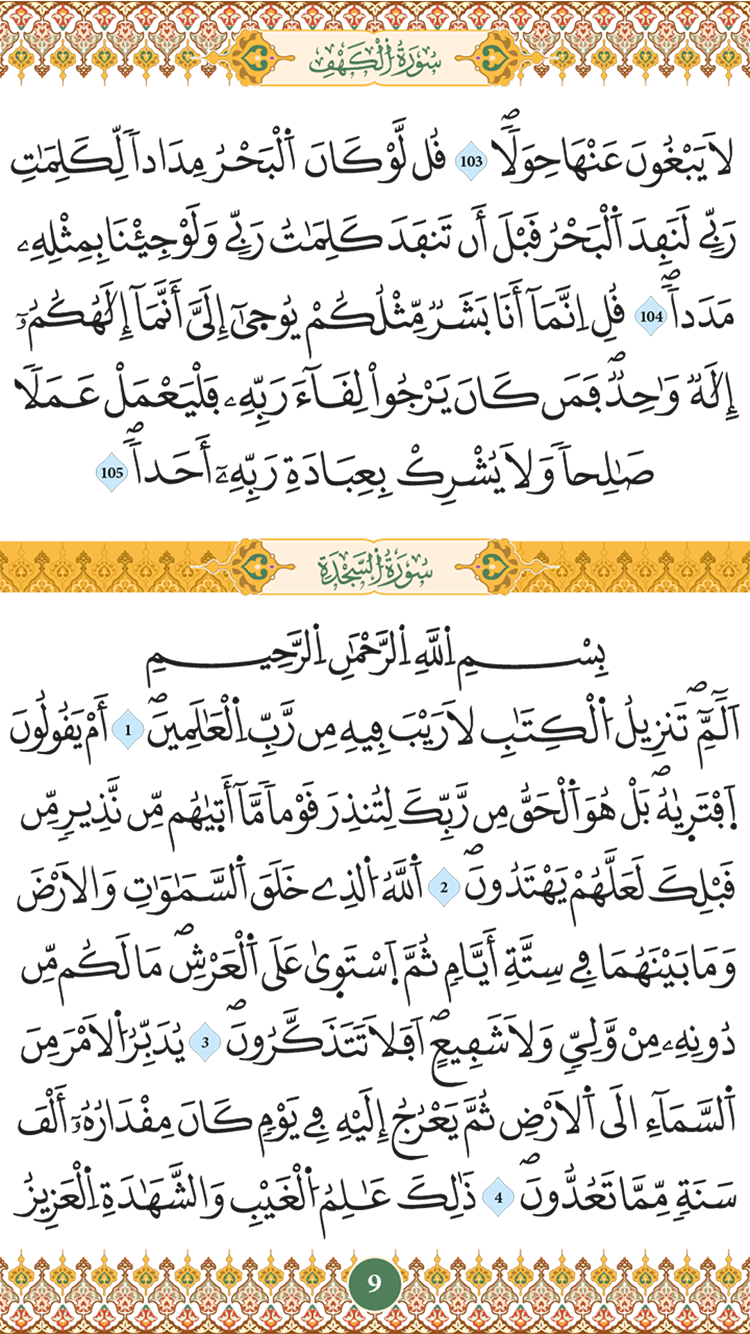 سُورَةُ الْكَهْفِ
لَا يَبْغُونَ عَنْهَا حِوَلاٗۖ 103 قُل لَّوْ كَانَ اَ۬لْبَحْرُ مِدَاداٗ لِّكَلِمَٰتِ
رَبِّے لَنَفِدَ اَ۬لْبَحْرُ قَبْلَ أَن تَنفَدَ كَلِمَٰتُ رَبِّے وَلَوْ جِئْنَا بِمِثْلِهِۦ
مَدَداٗۖ 104 قُلِ اِنَّمَآ أَنَا بَشَرٞ مِّثْلُكُمْ يُوح۪ىٰٓ إِلَيَّ أَنَّمَآ إِلَٰهُكُمُۥٓ
إِلَٰهٞ وَٰحِدٞۖ فَمَن كَانَ يَرْجُواْ لِقَآءَ رَبِّهِۦ فَلْيَعْمَلْ عَمَلاٗ
صَٰلِحاٗ وَلَا يُشْرِكْ بِعِبَادَةِ رَبِّهِۦٓ أَحَداَۢۖ 105
سُورَةُ السَّجْدَةِ
بِسْمِ اِ۬للَّهِ اِ۬لرَّحْمَٰنِ اِ۬لرَّحِيمِ
أَلَٓمِّٓۖ تَنزِيلُ اُ۬لْكِتَٰبِ لَا رَيْبَ فِيهِ مِن رَّبِّ اِ۬لْعَٰلَمِينَۖ 1 أَمْ يَقُولُونَ
اَ۪فْتَر۪ىٰهُۖ بَلْ هُوَ اَ۬لْحَقُّ مِن رَّبِّكَ لِتُنذِرَ قَوْماٗ مَّآ أَت۪ىٰهُم مِّن نَّذِيرٖ مِّن
قَبْلِكَ لَعَلَّهُمْ يَهْتَدُونَۖ 2 اَ۬للَّهُ اُ۬لذِے خَلَقَ اَ۬لسَّمَٰوَٰتِ وَالَارْضَ
وَمَا بَيْنَهُمَا فِے سِتَّةِ أَيَّامٖ ثُمَّ اَ۪سْتَو۪ىٰ عَلَى اَ۬لْعَرْشِۖ مَا لَكُم مِّن
دُونِهِۦ مِنْ وَّلِيّٖ وَلَا شَفِيعٍۖ اَفَلَا تَتَذَكَّرُونَۖ 3 يُدَبِّرُ اُ۬لَامْرَ مِنَ
اَ۬لسَّمَآءِ اِلَى اَ۬لَارْضِ ثُمَّ يَعْرُجُ إِلَيْهِ فِے يَوْمٖ كَانَ مِقْدَارُهُۥٓ أَلْفَ
سَنَةٖ مِّمَّا تَعُدُّونَۖ 4 ذَٰلِكَ عَٰلِمُ اُ۬لْغَيْبِ وَالشَّهَٰدَةِ اِ۬لْعَزِيزُ
9